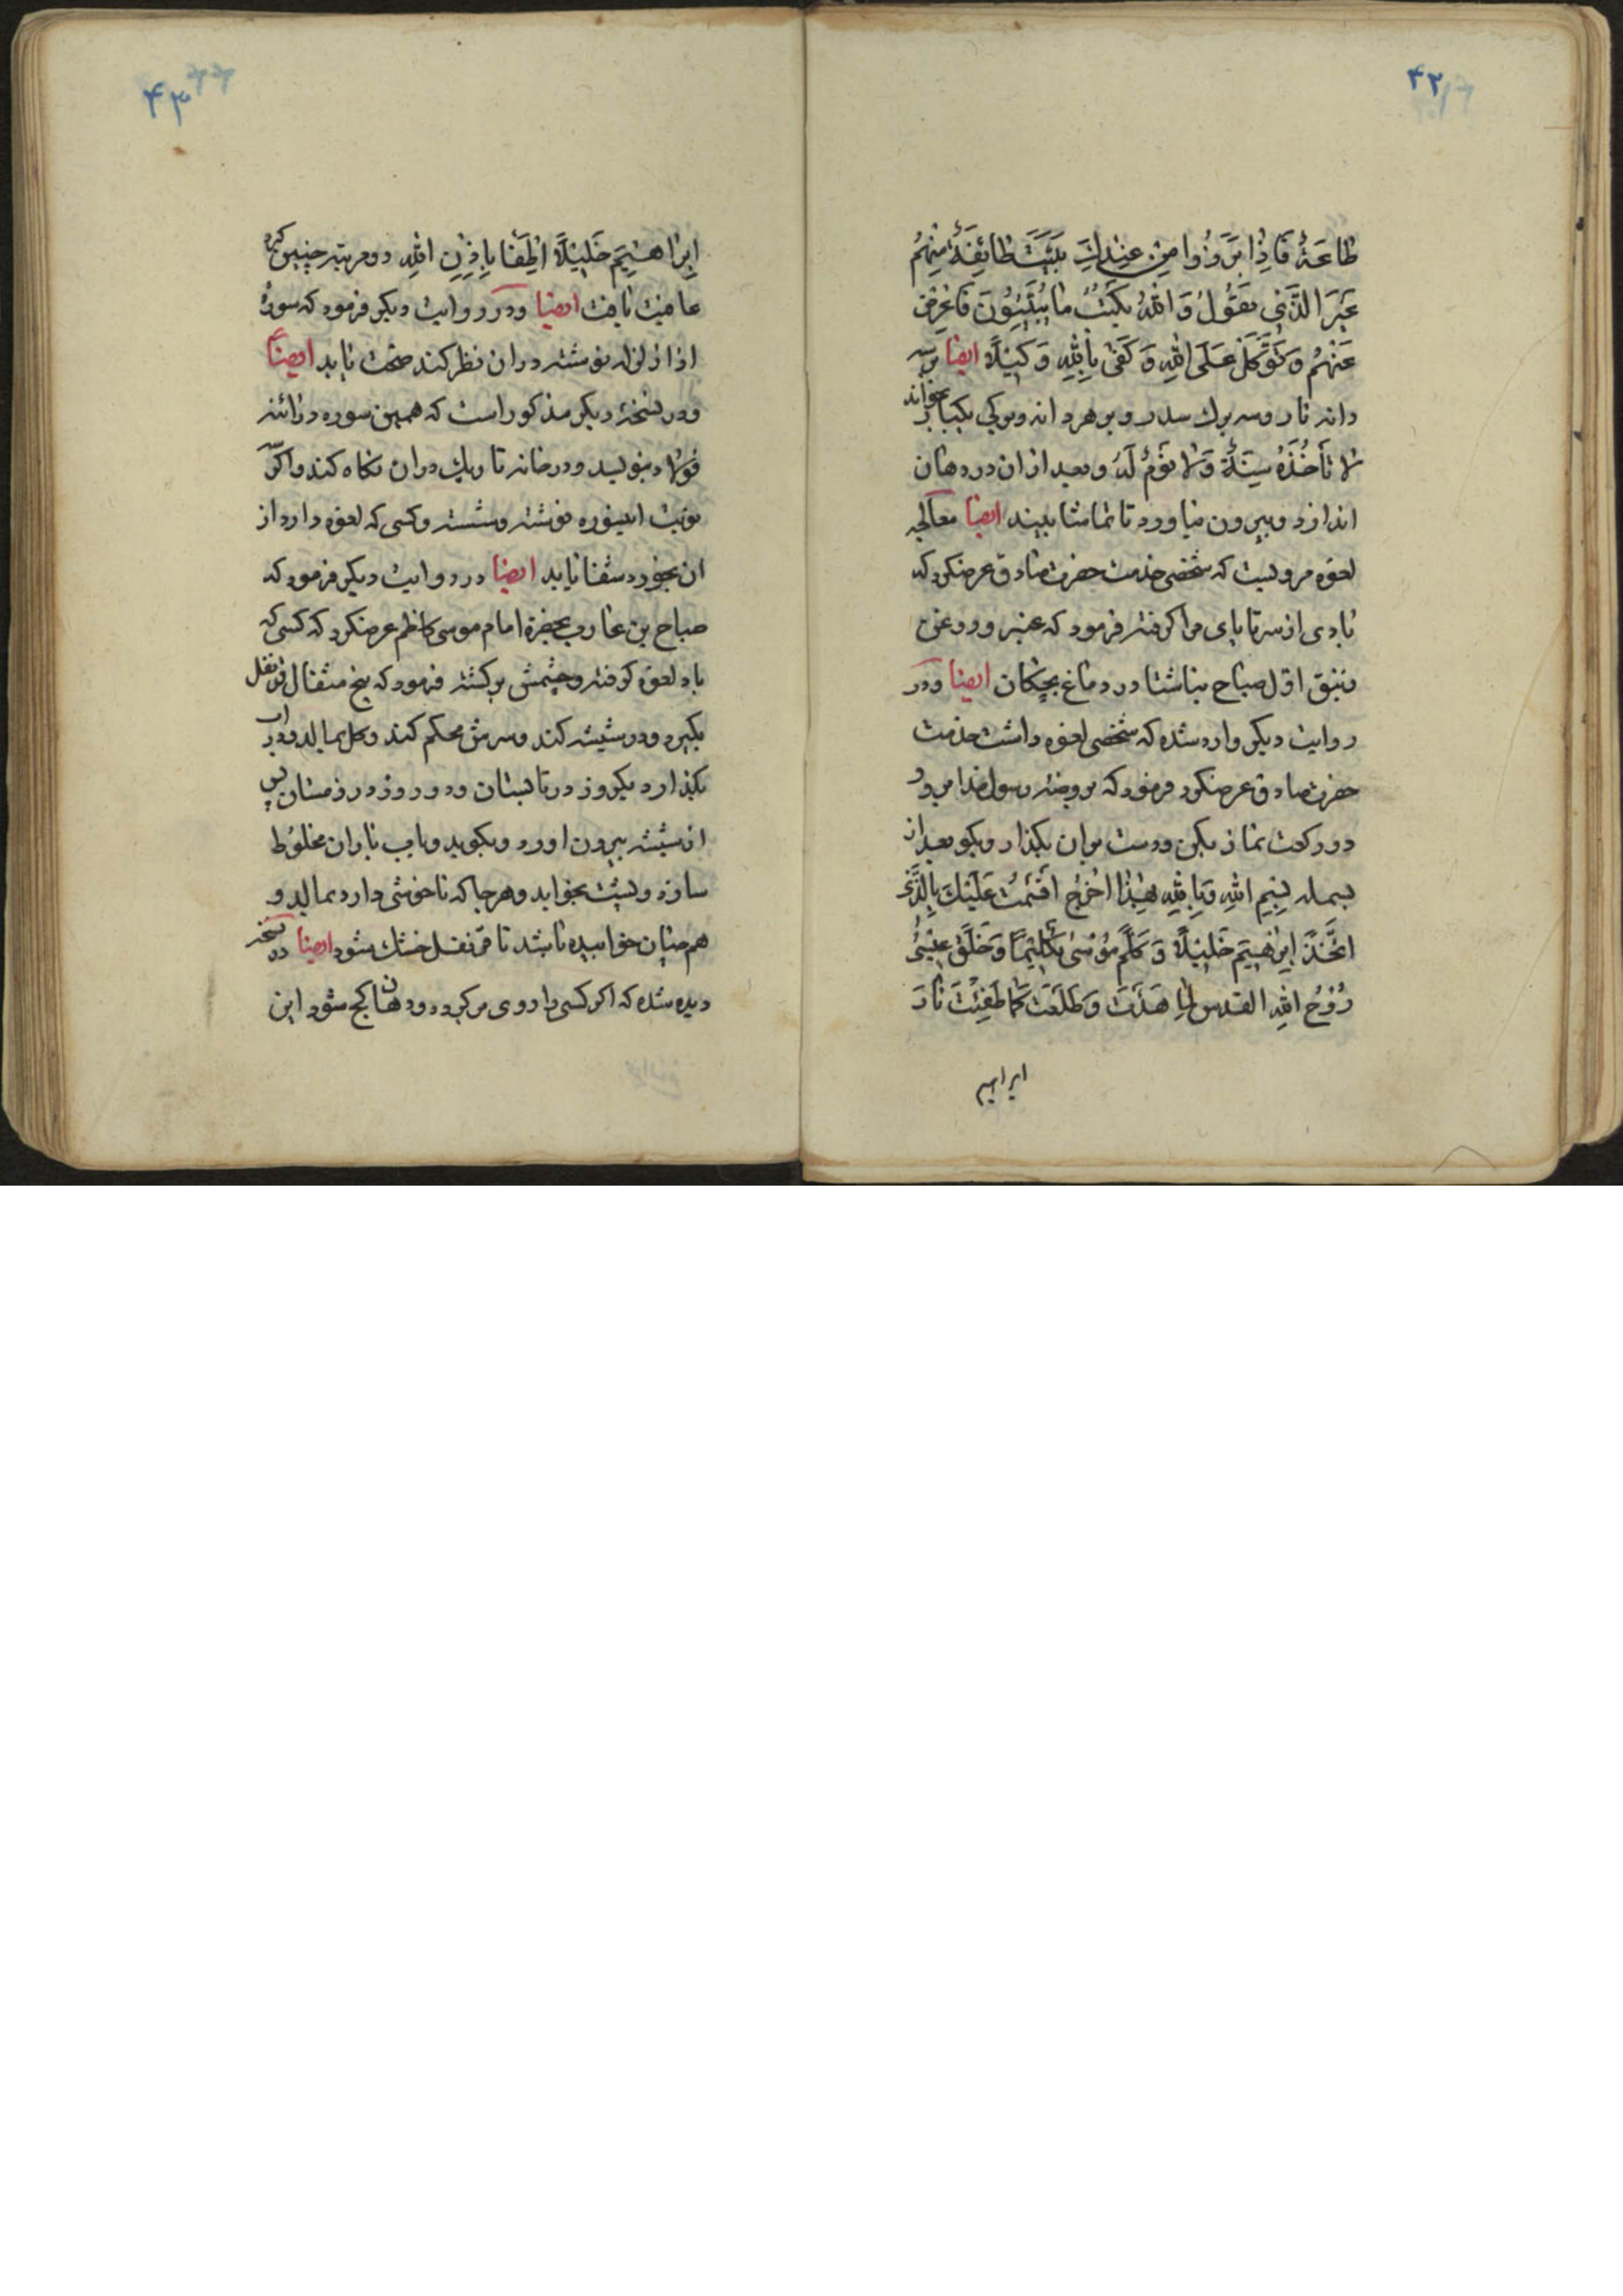 ۴۲
طاعَةٌ فَاِذا بَرَزُوا مِنْ عِنْدِكَ بَيَّتَ طائِفَةٌ مِنْهُمْ
غَيْرَ الَّذي تَقُولُ وَاللّٰهُ يَكْتُبُ ما يُبَيِّتُونَ فَاَعْرِضْ
عَنْهُمْ وَتَوَكَّلْ عَلَى اللّٰهِ وَكَفىٰ بِاللّٰهِ وَكيلاً ايضا بر سه
دانه نار و سه برك سدر و بر هر دانه و بركى يكبار بخواند
لا تَأخُذُهُ سِنَةٌ وَلا نَوْمٌ لَهُ و بعد از ان در دهان
اندازد و بيرون نياورد تا تماشا ببيند ايضا معالجه
لقوه مرويست كه شخصى خدمت حضرت صادق عرضكرد كه
بادى از سر تا پاى مرا كرفته فرمود كه عنبر و روغن
زنبق اوّل صباح ناشتا در دماغ بچكان ايضا و در
روايت ديكر وارد شده كه شخصى لقوه داشت خدمت
حضرت صادق عرضكرد فرمود كه بروضه رسول خدا مى رو
دو ركعت نماز بكن و دست بران بكذار و بكو بعد از
بسمله بِسْمِ اللّٰهِ وَبِاللّٰهِ بِهٰذا اُخْرُجْ اَقْسَمْتُ عَلَيْكَ بِالَّذى
اتَّخَذَ اِبْرٰهيمَ خَليلاً وَكَلَّمَ مُوسىٰ تَكْليماً وَخَلَقَ عيسىٰ
رُوْحُ اللّٰهِ القدس لمّا هَدَئَتْ وَطَلَعَتْ كَما طَفِئَتْ نٰارَ
ابراهيم
۴۳
اِبْرٰاهيمَ خَليلاً اَطْفَا بِاِذْنِ اللّٰهِ دو مرتبه چنين كرد
عافيت يافت ايضا و در روايت ديكر فرمود كه سورهٔ
اذا زلزله نوشته در ان نظر كند صحّت يابد ايضاً
و در نسخهٔ ديكر مذكور است كه همين سوره در ائنه
فولاد بنويسد و در خانه تاريك در ان نكاه كند و اكر سه
نوبت اينسوره نوشته و شسته و كسى كه لقوه دارد از
ان بخورد شفا يابد ايضا در روايت ديكر فرمود كه
صباح بن محارب بحضرة امام موسى كاظم عرضكرد كه كسى كه
باد لقوه كرفته و چشمش بركشته فرمود كه پنج مثقال قرنفل
بكيرد و در شيشه كند و سرش محكم كند و كل بمالد و در اب
بكذارد يكروز در تابستان و دو روز در زمستان پس
از شيشه بيرون اورد و بكوبد و باب باران مخلوُط
سازد و بپشت بخوابد و هر جا كه ناخوشى دارد بمالد و
همچنان خوابيده باشد تا قرنفل خشك شود ايضا در نسخه
ديده شده كه اكر كسى را روى مر كرده و دهان كج شود اين